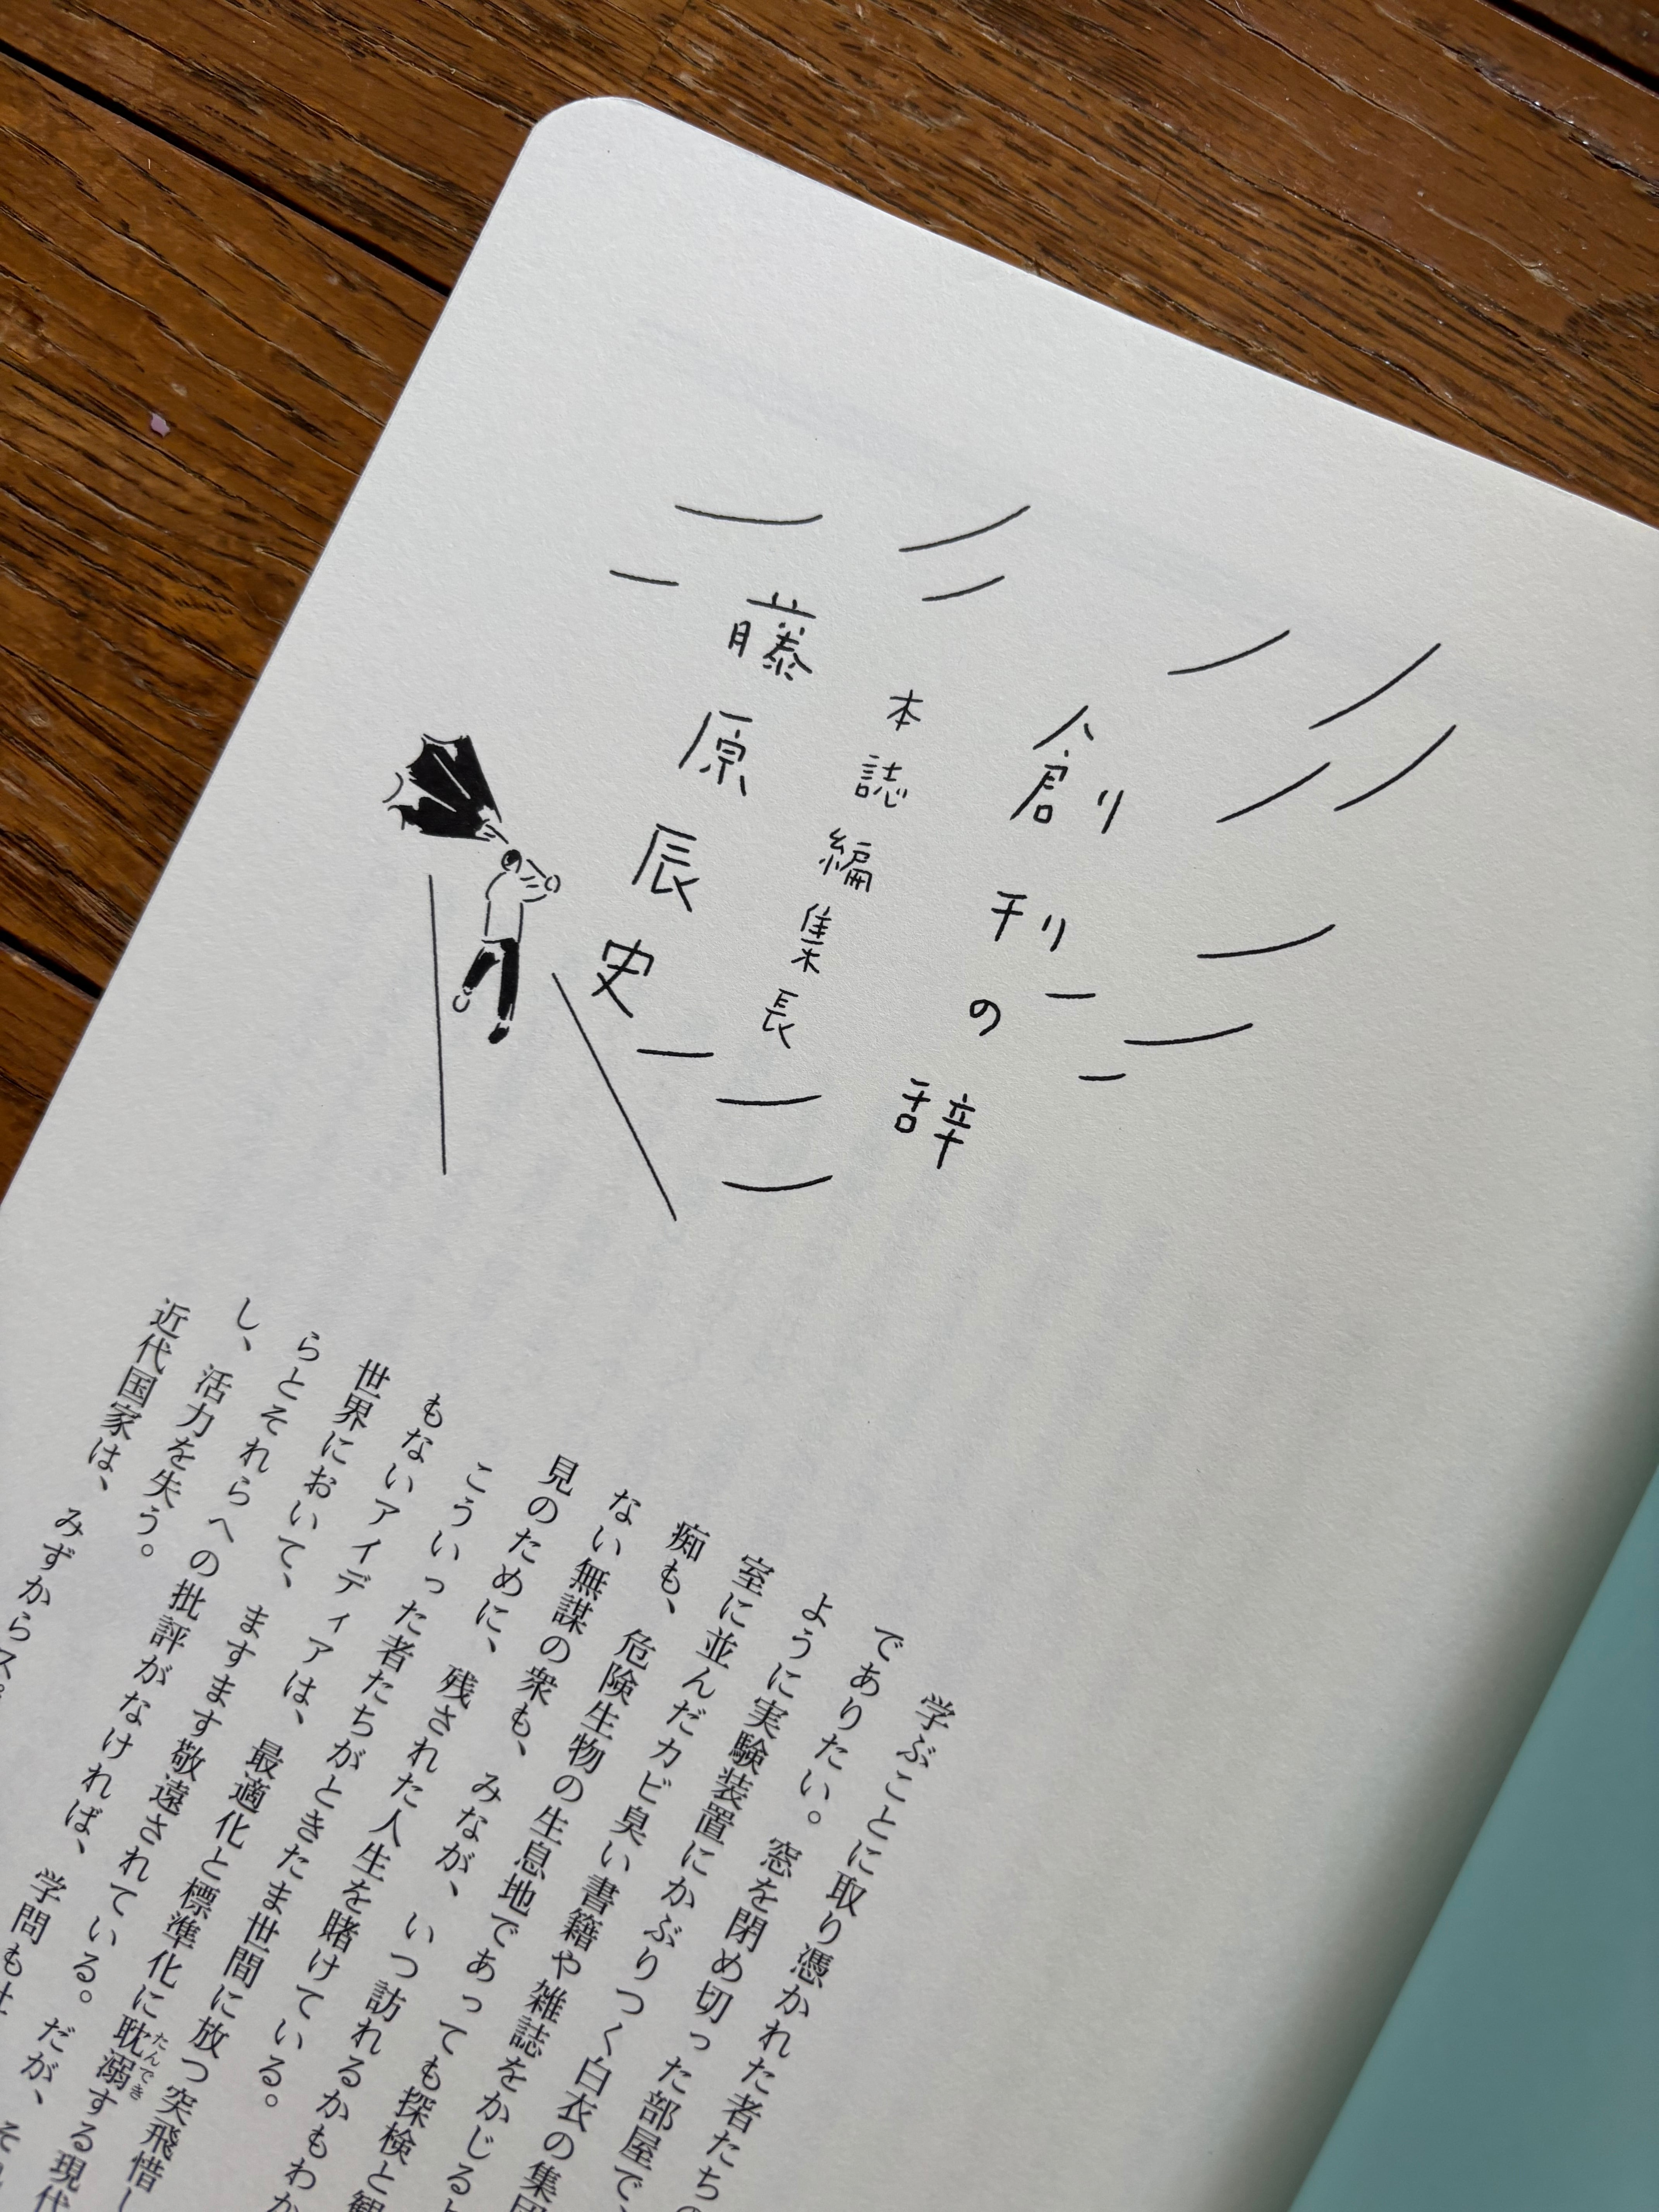 創刊の辞
本誌編集長
藤原辰史
学ぶことに取り憑かれた者たちの
でありたい。窓を閉め切った部屋で、
ように実験装置にかぶりつく白衣の集団
室に並んだカビ臭い書籍や雑誌をかじる
痴も、危険生物の生息地であっても探検と観
ない無謀の衆も、みなが、いつ訪れるかもわか
見のために、残された人生を賭けている。
こういった者たちがときたま世間に放つ突飛
もないアイディアは、最適化と標準化に耽溺する現代
たんでき
世界において、ますます敬遠されている。だが、
らとそれらへの批評がなければ、学問も
し、活力を失う。
近代国家は、みずから